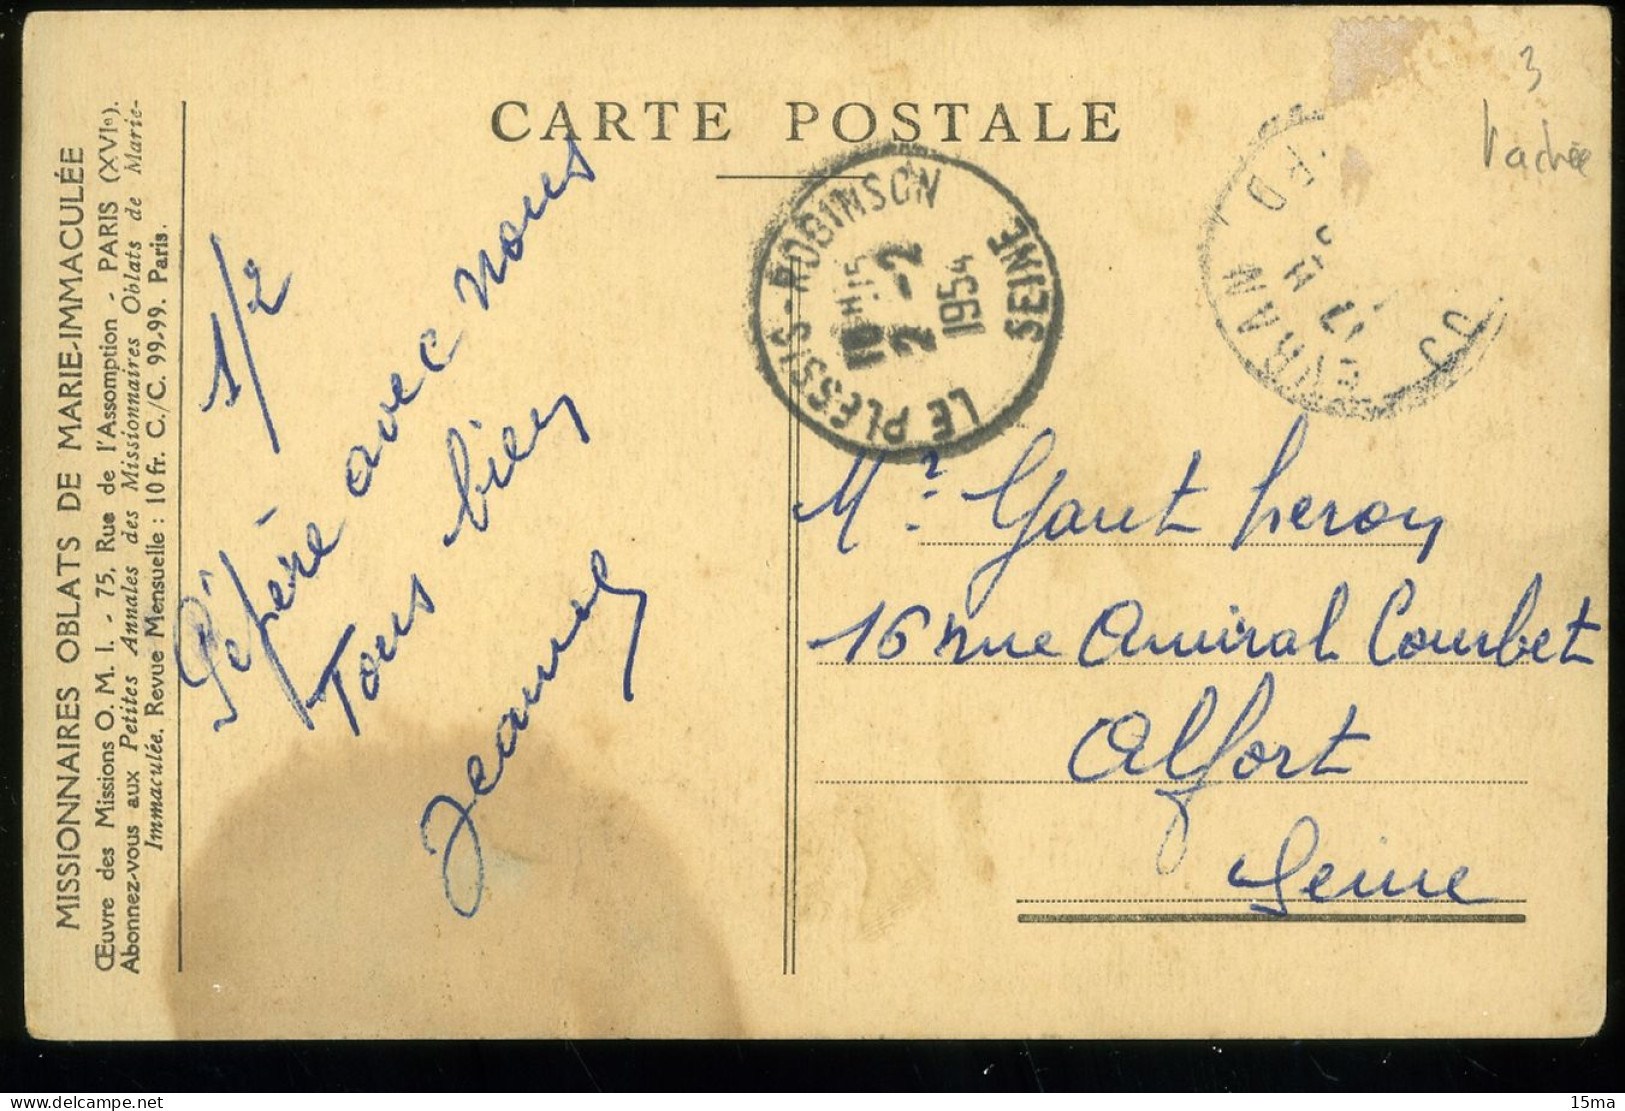 CARTE POSTALE
MISSIONNAIRES OBLATS DE MARIE-IMMACULÉE
Œuvre des Missions O. M. I. - 75, Rue de l'Assomption - PARIS (XVIe).
Abonnez-vous aux Petites Annales des Missionnaires Oblats de Marie-
Immaculée. Revue Mensuelle : 10 fr. C./C. 99.99. Paris.
1/2
Pépère avec nous
Tous bien
Jeanne
LE PLESSIS-ROBINSON
10H15
2-2
1954
SEINE
3
Vachée
Mr Gaut heron
16 rue Amiral Courbet
Alfort
Seine
15ma